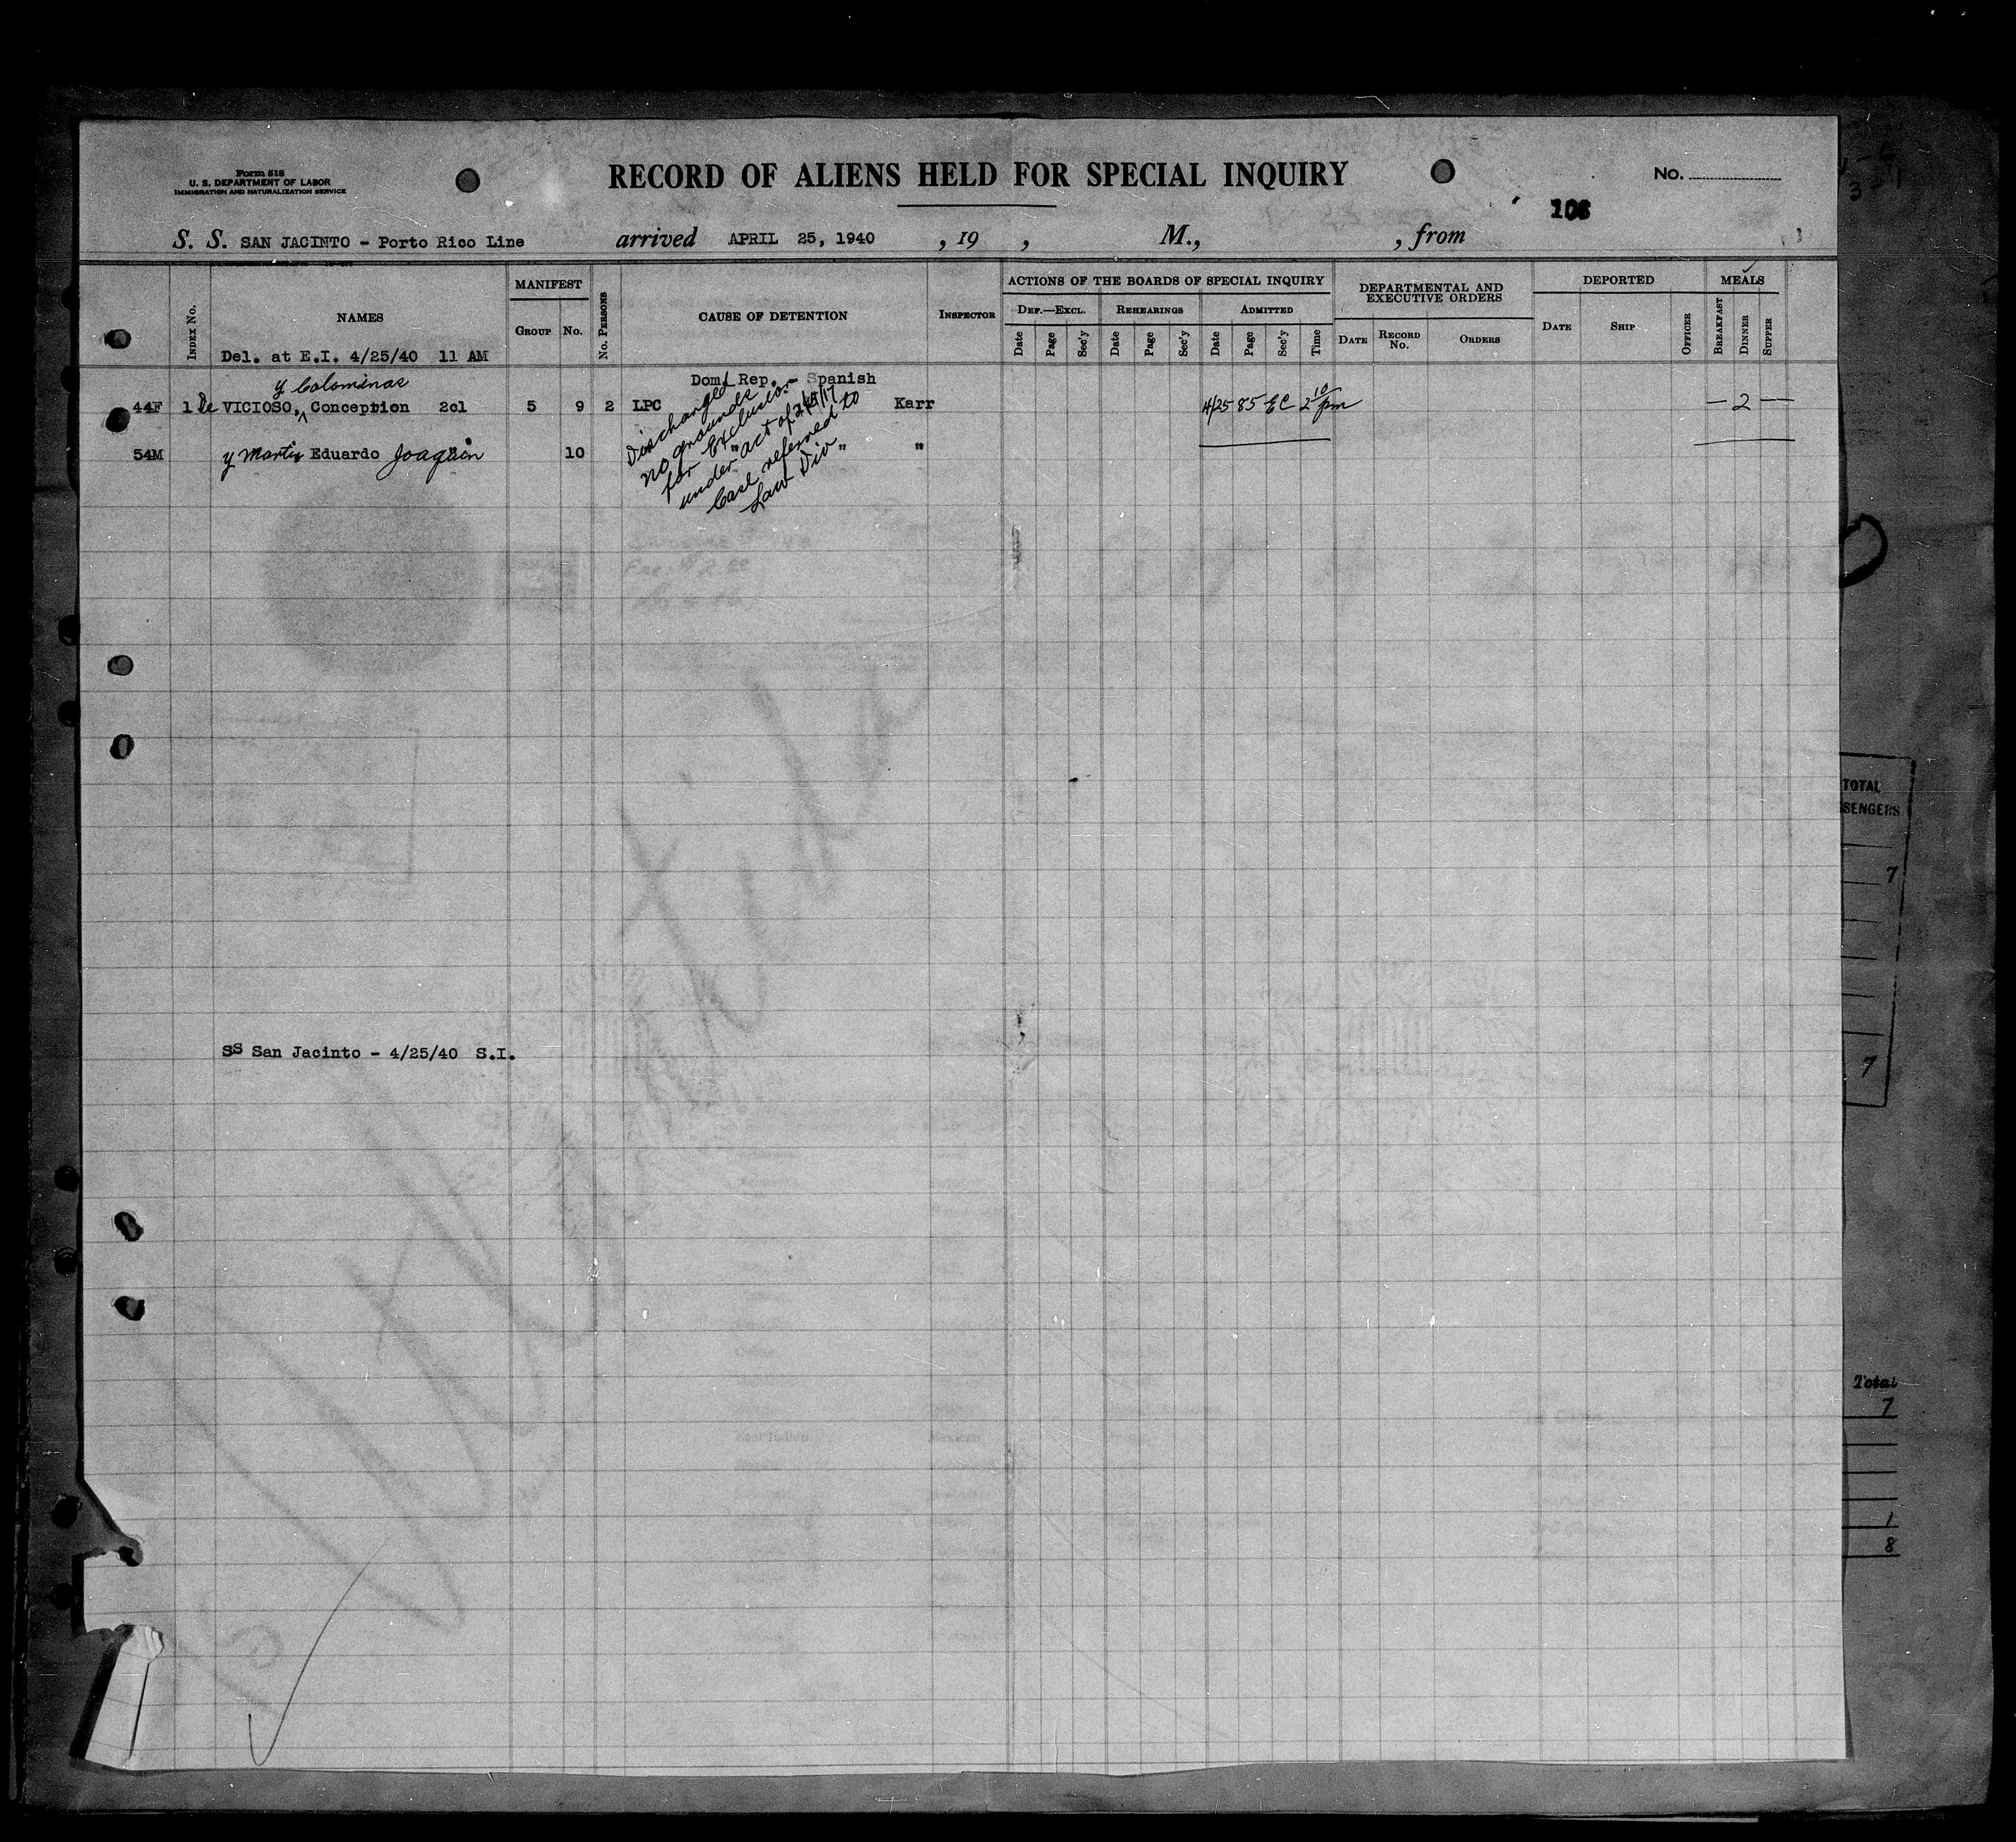 Form 518
U. S. DEPARTMENT OF LABOR
IMMIGRATION AND NATURALIZATION SERVICE
RECORD OF ALIENS HELD FOR SPECIAL INQUIRY
No.
108
S. S. SAN JACINTO - Porto Rico Line arrived APRIL 25, 1940 , 19 , M., , from
INDEX No.
NAMES
MANIFEST
GROUP No.
No. PERSONS
CAUSE OF DETENTION
INSPECTOR
ACTIONS OF THE BOARDS OF SPECIAL INQUIRY
DEF.—EXCL. REHEARINGS ADMITTED
Date Page Sec'y Date Page Sec'y Date Page Sec'y Time
DEPARTMENTAL AND
EXECUTIVE ORDERS
DATE RECORD No. ORDERS
DEPORTED
DATE SHIP OFFICER
MEALS
BREAKFAST DINNER SUPPER
Del. at E.I. 4/25/40 11 AM
y Colominas
Dom. Rep. - Spanish
44F 1 De VICIOSO, Conception 2cl 5 9 2 LPC Karr 4/25 85 EC 2 10/pm — 2 —
54M y Martin Eduardo Joaquin 10 " " "
Discharged
no grounds
for Exclusion
under act of 2/5/17
Case referred to
Law Div
SS San Jacinto - 4/25/40 S.I.
TOTAL
SENGERS
7
7
Total
7
1
8